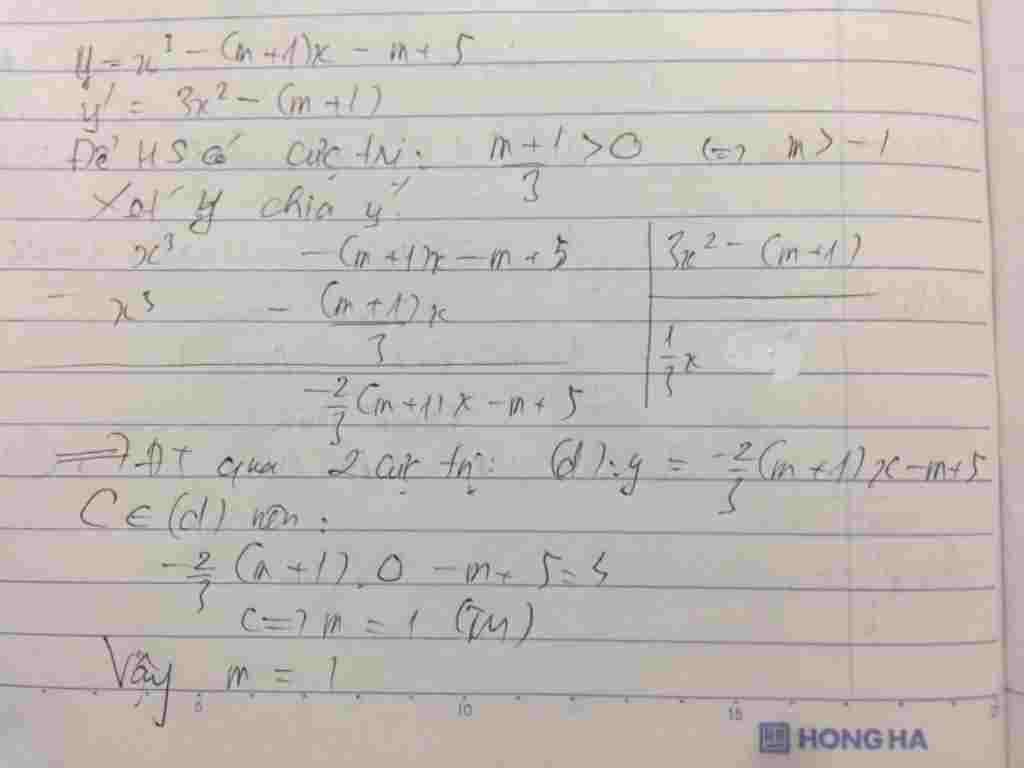 y = x³ - (m+1)x - m + 5
y' = 3x² - (m+1)
Để HS có cực trị: (m+1)/3 > 0 <=> m > -1
Xét y chia y'
x³ - (m+1)x - m + 5 | 3x² - (m+1)
- x³ - (m+1)x/3 | 1/3 x
-2/3 (m+1)x - m + 5
=> ĐT qua 2 cực trị: (d): y = -2/3 (m+1)x - m + 5
C ∈ (d) nên:
-2/3 (m+1).0 - m + 5 = 4
<=> m = 1 (TM)
Vậy m = 1
5 10 15 2
HONG HA